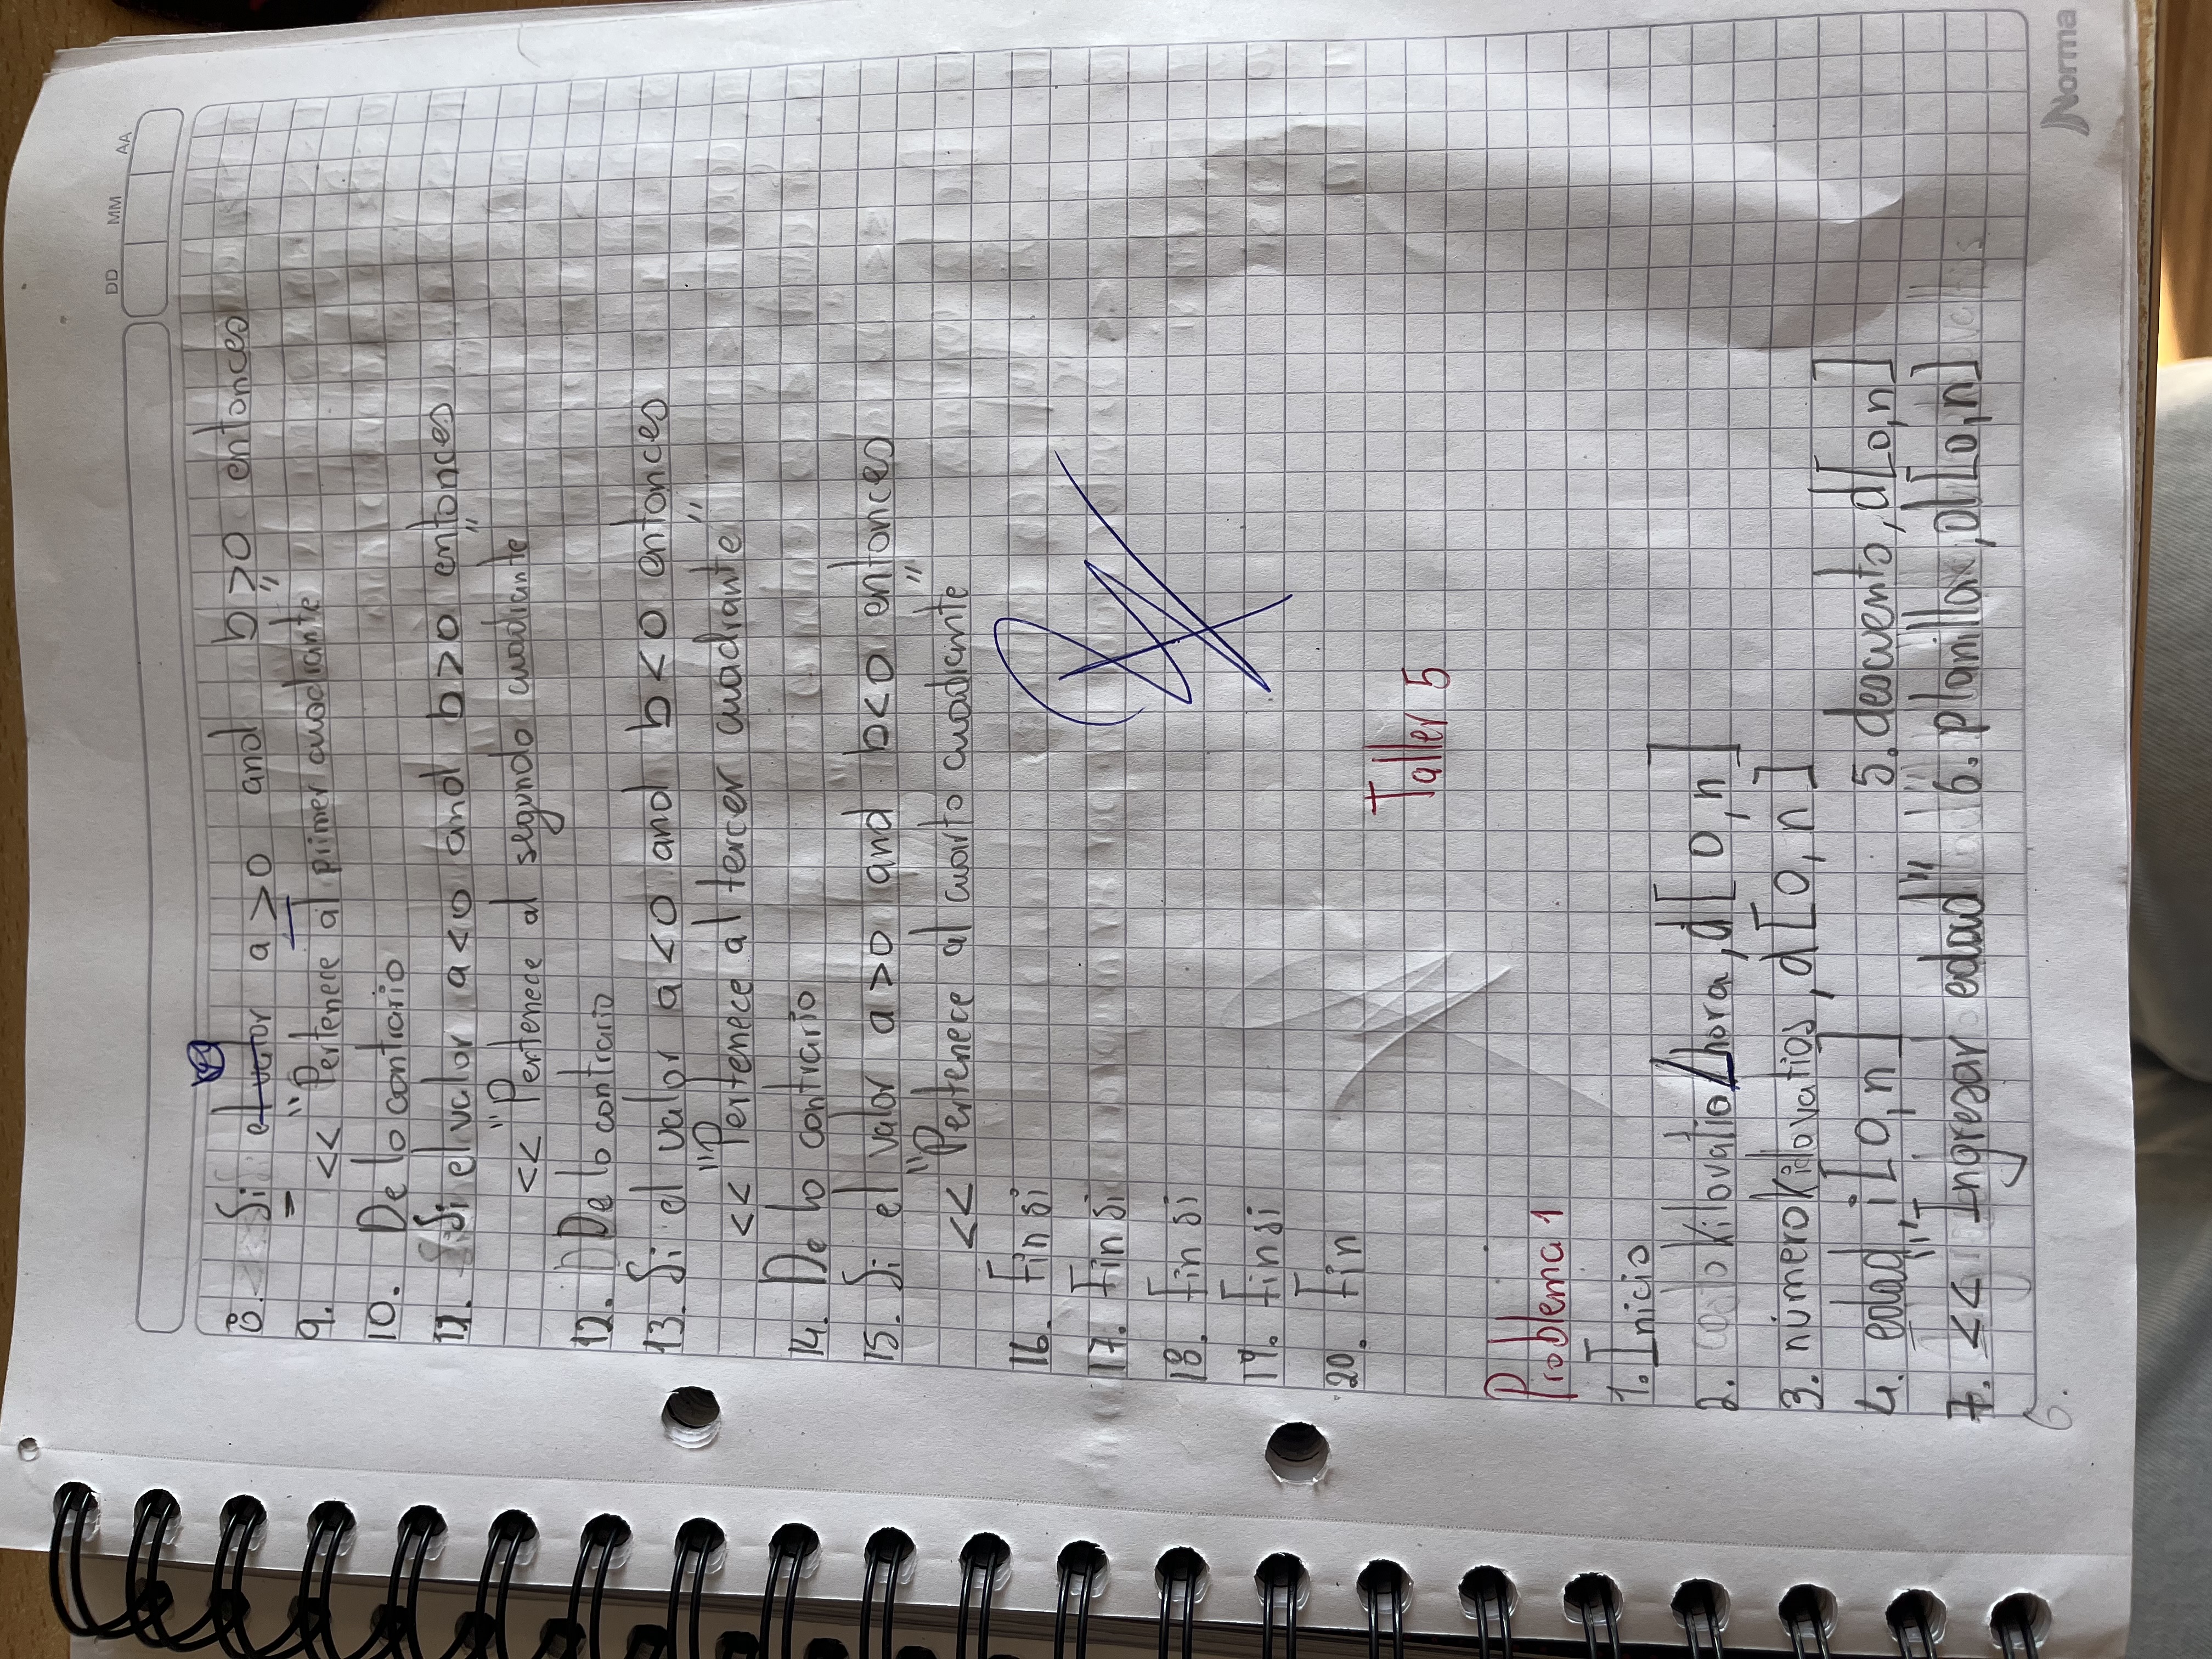 DD MM AA
8. Si el valor a > 0 and b > 0 entonces
9. << "Pertenece al primer cuadrante"
10. De lo contrario
11. Si el valor a < 0 and b > 0 entonces
<< "Pertenece al segundo cuadrante"
12. De lo contrario
13. Si el valor a < 0 and b < 0 entonces
<< "Pertenece al tercer cuadrante"
14. De lo contrario
15. Si el valor a > 0 and b < 0 entonces
<< "Pertenece al cuarto cuadrante"
16. Fin si
17. Fin si
18. Fin si
19. Fin si
20. Fin
Taller 5
Problema 1
1. Inicio
2. Kilovatio/hora, d[0,n]
3. númeroKilovatios, d[0,n]
4. edad, i[0,n] 5. descuento, d[0,n]
7. << "Ingresar edad" 6. planilla, d[0,n]
6.
Norma